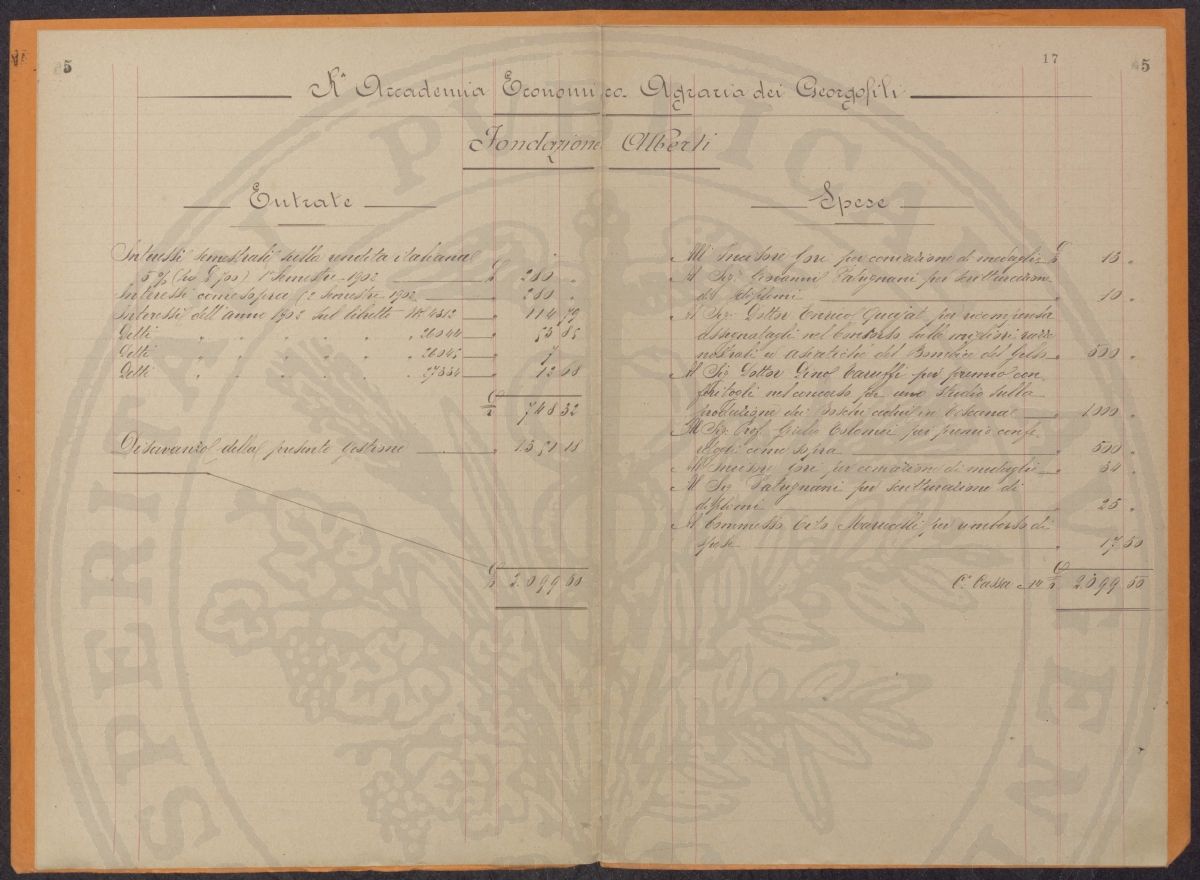 5
17
5
Rª Accademia Economico Agraria dei Georgofili
Fondazione Alberti
Entrate
Interessi semestrali sulla rendita italiana
5% 1º Semestre 1902 £ 280 "
Interessi come sopra 2º Semestre 1902 " 280 "
Interessi dell'anno 1902 sul libretto Nº 4312 " 114 79
Detti " " " " " " 26044 " 53 85
Detti " " " " " " 26045 " 7
Detti " " " " " " 27334 " 12 68
£ 748 32
Disavanzo della presente gestione " 1351 18
£ 2.099 50
Spese
All'Incisore Gori per coniazione di medaglie £ 13 "
Al Sig. Giovanni per scritturazione
di diplomi " 10 "
Al Sig. Dottor Enrico per ricompensa
assegnatagli nel Concorso sulle migliori razze
nostrali e asiatiche del Bombice del Gelso " 500 "
Al Sig. Dottor Gino per premio con-
feritogli nel concorso per uno studio sulla
produzione dei in Toscana " 1000 "
Al Sig. Prof. Giulio per premio confe-
ritogli come sopra " 500 "
All'Incisore Gori per coniazione di medaglie " 34 "
Al Sig. per scritturazione di
diplomi " 25 "
Al Commesso per rimborso di
spese " 17 50
Cº Cassa " 14 £ 2.099 50
SPERITATI PUBLICAE